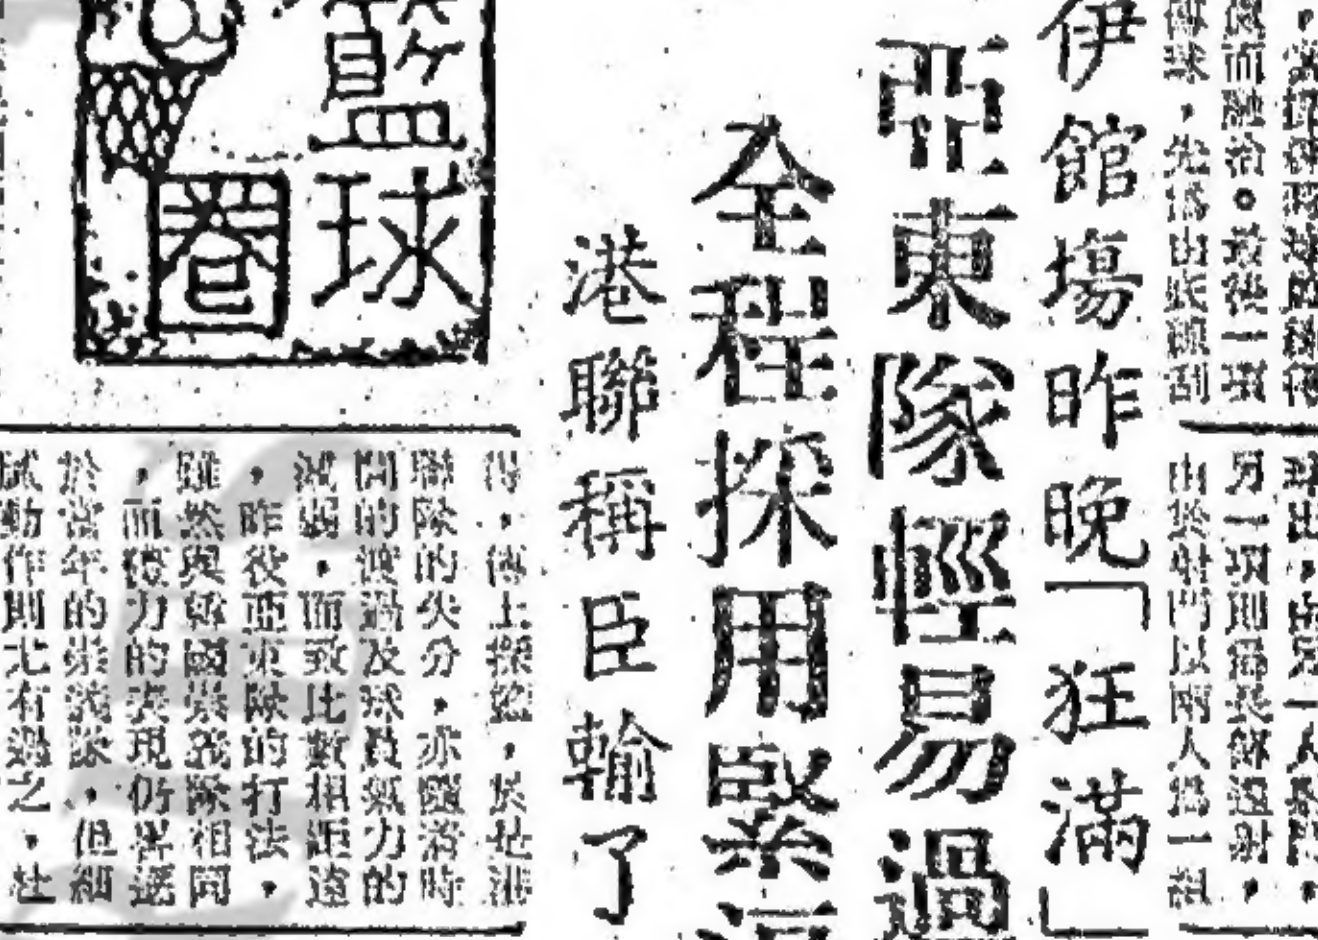 而融洽。最後一環
傳球，先為由底線刮
球出，由另一人射門，
另一項則為長傳遠射，
由於射門以兩人為一組
伊館場昨晚「狂滿」
亞東隊輕易過
全程採用緊
港聯稱臣輸了
籃球圈
得，傳上探籃，於是港
聯隊的失分，亦隨洛時
間的渡過及球員氣力的
減弱，而致比數相距遠
，昨役亞東隊的打法，
雖然與韓國崇義隊相同
，而體力的表現仍畧遜
於當年的崇義隊，但細
膩動作則尤有過之，杜